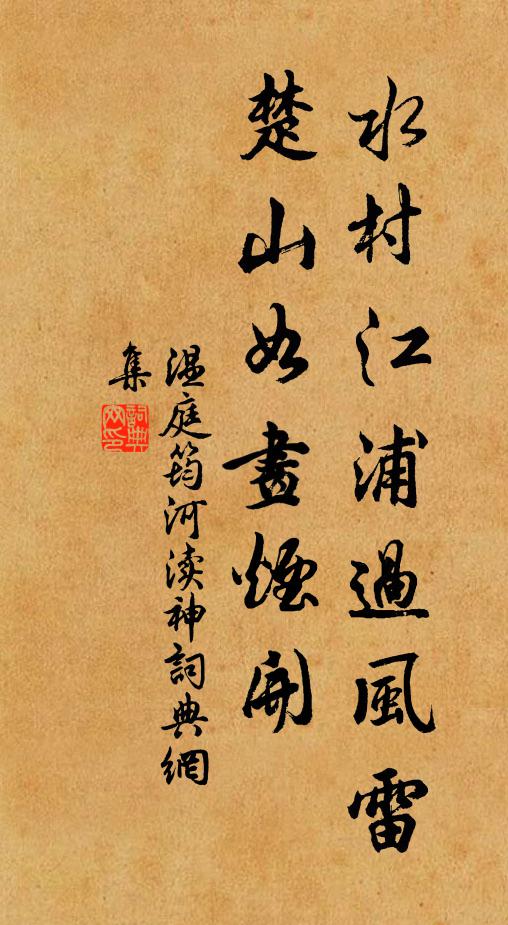 水村江浦過風雷
楚山如畫煙開
温庭筠河渎神詞典網
集
詞典網印